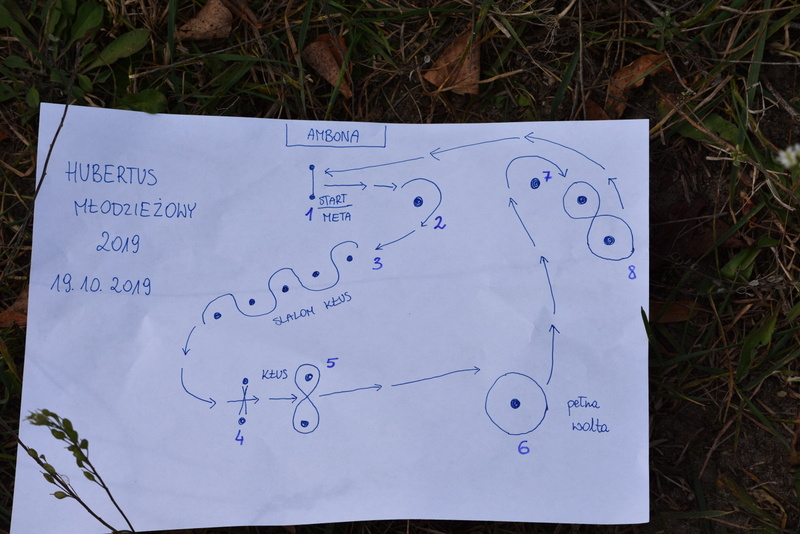 AMBONA
HUBERTUS
MŁODZIEŻOWY
2019
19.10.2019
1
START
META
2
3
SLALOM KŁUS
KŁUS
5
4
6
pełna
wolta
7
8